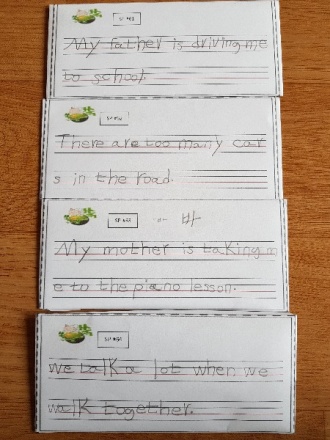 My father is driving me
to school.
There are too many car
s in the road.
바
My mother is taking m
e to the piano lesson.
we talk a lot when we
walk together.